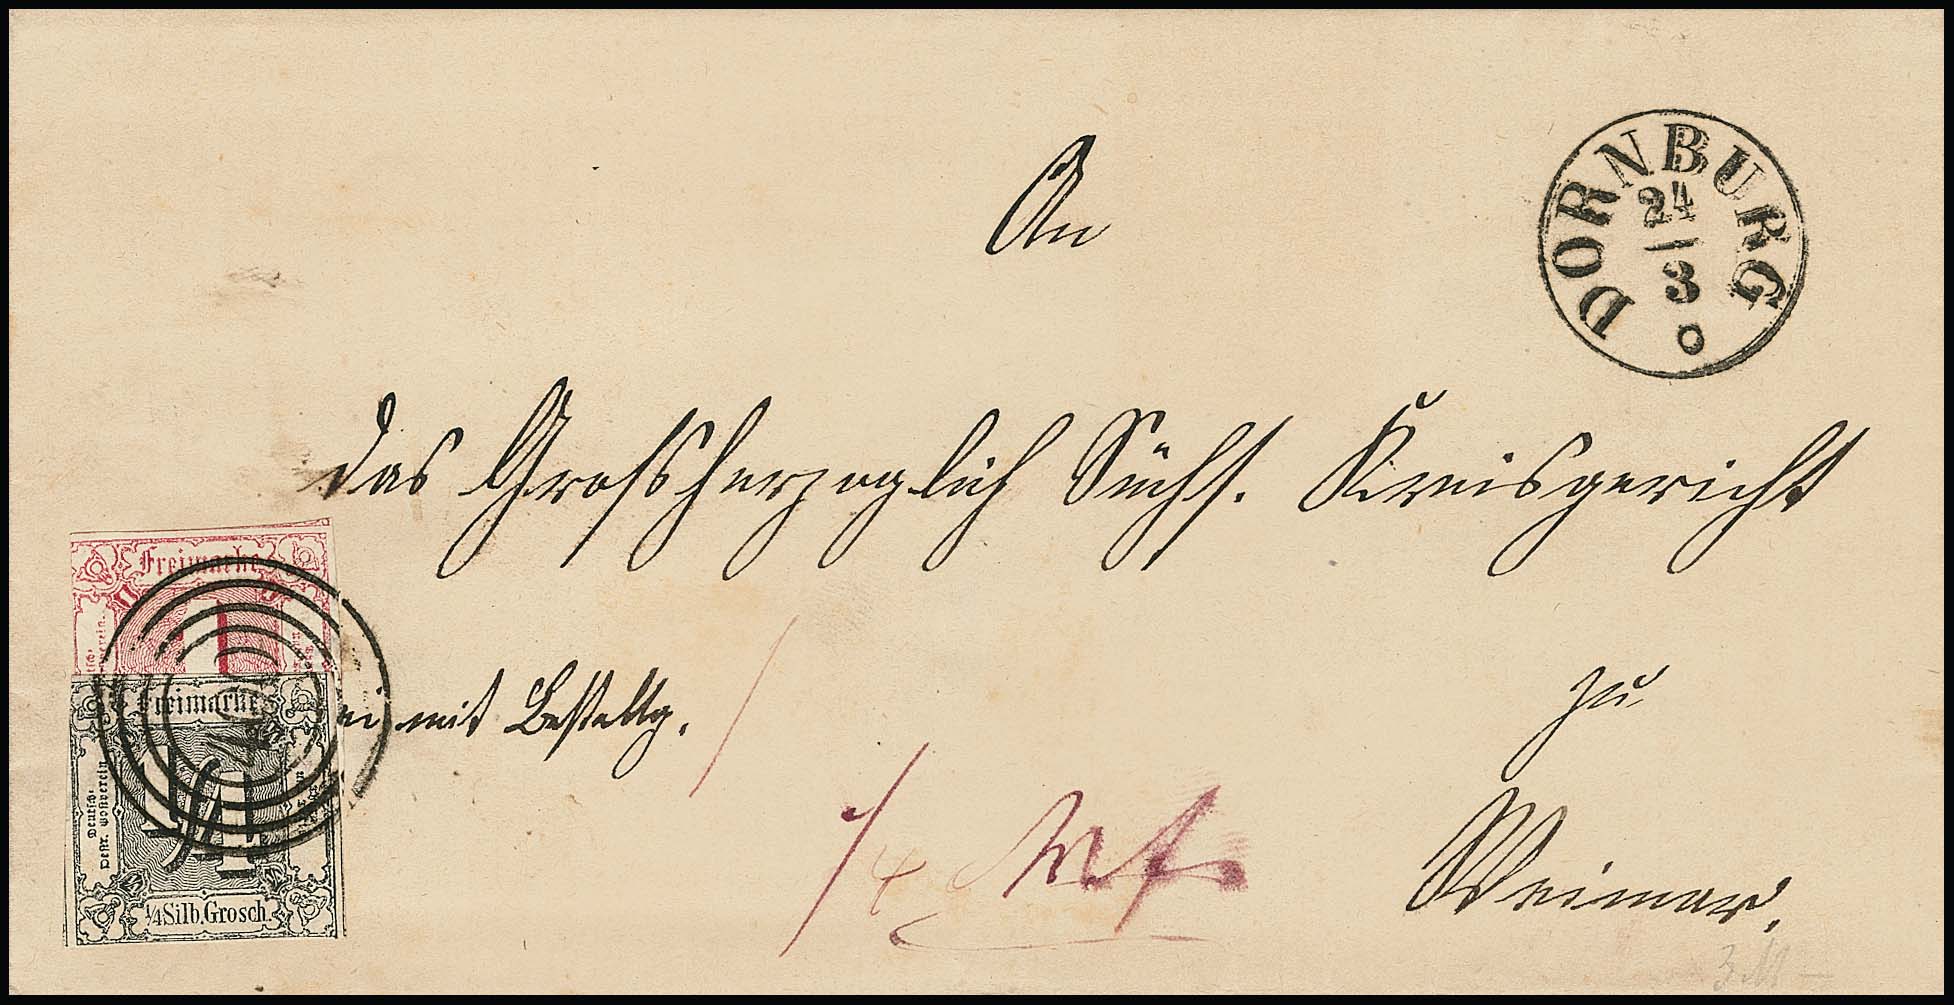 An
DORNBURG
24
3
das Großherzoglich Sächs. Kreisgericht
Freimarke
1
ei mit Bestellg.
zu
Freimarke
Deutsch-
Oestr. Postverein
1/4
1/4 Silb. Grosch.
Weimar.